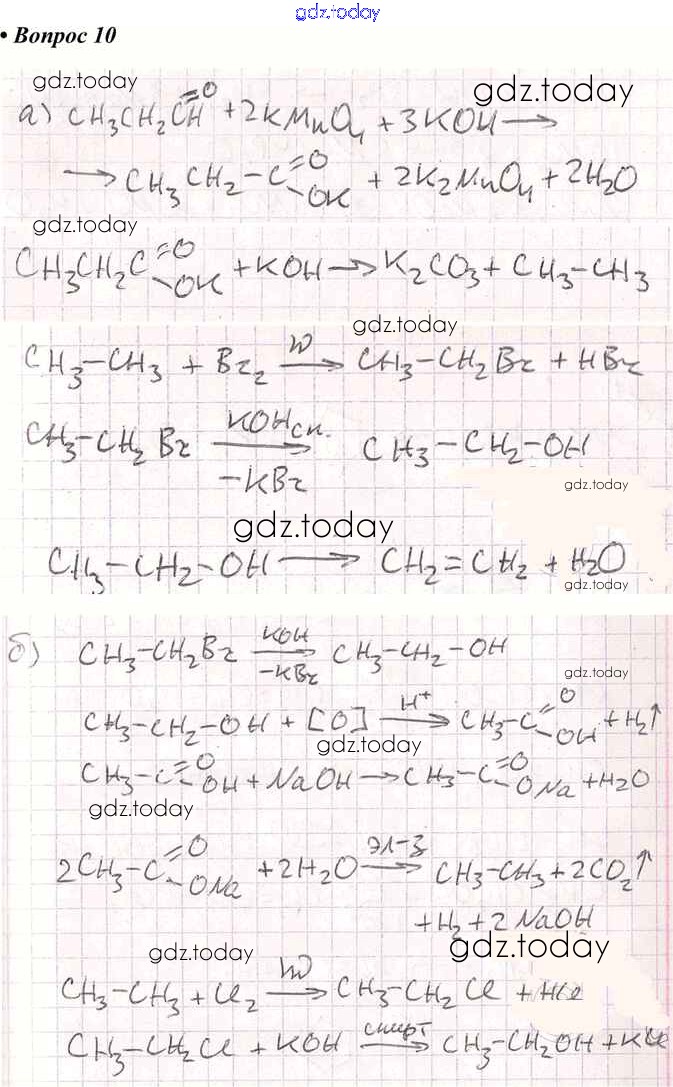 gdz.today
• Вопрос 10
gdz.today
gdz.today
а) CH3CH2CH=O + 2KMnO4 + 3KOH →
→ CH3CH2-C=O-OK + 2K2MnO4 + 2H2O
gdz.today
CH3CH2C=O-OK + KOH → K2CO3 + CH3-CH3
gdz.today
CH3-CH3 + Br2 hν→ CH3-CH2Br + HBr
CH3-CH2Br KOH сп. → -KBr CH3-CH2-OH
gdz.today
gdz.today
CH3-CH2-OH → CH2=CH2 + H2O
gdz.today
б) CH3-CH2Br KOH → -KBr CH3-CH2-OH
gdz.today
CH3-CH2-OH + [O] H+ → CH3-C=O-OH + H2↑
gdz.today
CH3-C=O-OH + NaOH → CH3-C=O-ONa + H2O
gdz.today
2CH3-C=O-ONa + 2H2O эл-з → CH3-CH3 + 2CO2↑
+ H2 + 2NaOH
gdz.today
gdz.today
CH3-CH3 + Cl2 hν→ CH3-CH2Cl + HCl
CH3-CH2Cl + KOH спирт → CH3-CH2OH + KCl